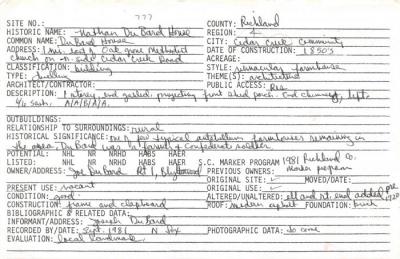 777
SITE NO.: COUNTY: Richland
HISTORIC NAME: Nathan DuBard House REGION: 4
COMMON NAME: DuBard House CITY: Cedar Creek Community
ADDRESS: 1 mi. east of Oak Grove Methodist DATE OF CONSTRUCTION: 1850's
church on n. side Cedar Creek Road ACREAGE:
CLASSIFICATION: building STYLE: vernacular farmhouse
TYPE: building THEME(S): architecture
ARCHITECT/CONTRACTOR: PUBLIC ACCESS: Res
DESCRIPTION: 1 story, end gabled, projecting front shed porch. End chimneys, left.
4/4 sash. A/A/B/A/A.
OUTBUILDINGS:
RELATIONSHIP TO SURROUNDINGS: rural
HISTORICAL SIGNIFICANCE: One of few typical antebellum farmhouses remaining in
the area. DuBard was farmer & Confederate soldier.
POTENTIAL: NHL NR NRHD HABS HAER
LISTED: NHL NR NRHD HABS HAER S.C. MARKER PROGRAM 1981 Richland Co.
OWNER/ADDRESS: Joe DuBard Rt 1, Blythewood PREVIOUS OWNERS: marker program
ORIGINAL SITE: ✓ MOVED/DATE:
PRESENT USE: vacant ORIGINAL USE: ✓
CONDITION: good ALTERED/UNALTERED: ell and rt. end added pre 1920
CONSTRUCTION: frame and clapboard ROOF: asphalt FOUNDATION: brick
BIBLIOGRAPHIC & RELATED DATA:
INFORMANT/ADDRESS: Joseph DuBard
RECORDED BY/DATE: Sept. 1981 N Fox PHOTOGRAPHIC DATA: to come
EVALUATION: local landmark